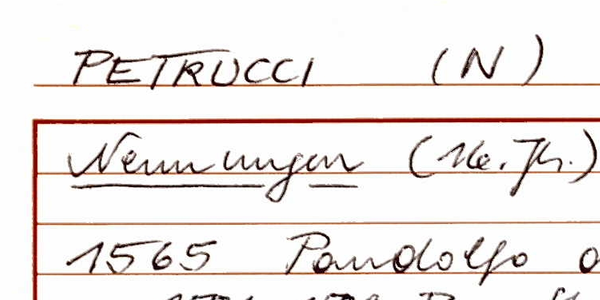 PETRUCCI (N)
Nennungen (16. Jh.)
1565 Pandolfo